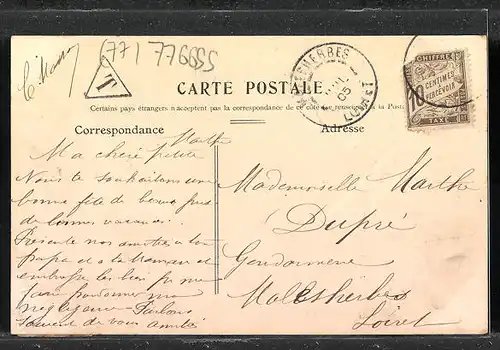 (77) 776655
T
CARTE POSTALE
MALESHERBES
05
LOIRET
CHIFFRE
10 CENTIMES
A PERCEVOIR
TAXE
Certains pays étrangers n'acceptent pas la correspondance de ce côté (se renseigner à la Poste)
Correspondance
Adresse
Marthe
Ma chère petite
Nous te souhaitons une
bonne fête de beaux jours
de bonnes vacances.
Présente nos amitiés à ton
papa et à ta maman et
embrasse les bien pr
faire pardonner
négligence Parlons
souvent de vous amitiés
Mademoiselle Marthe
Dupré
Gendarmerie
Malesherbes
Loiret